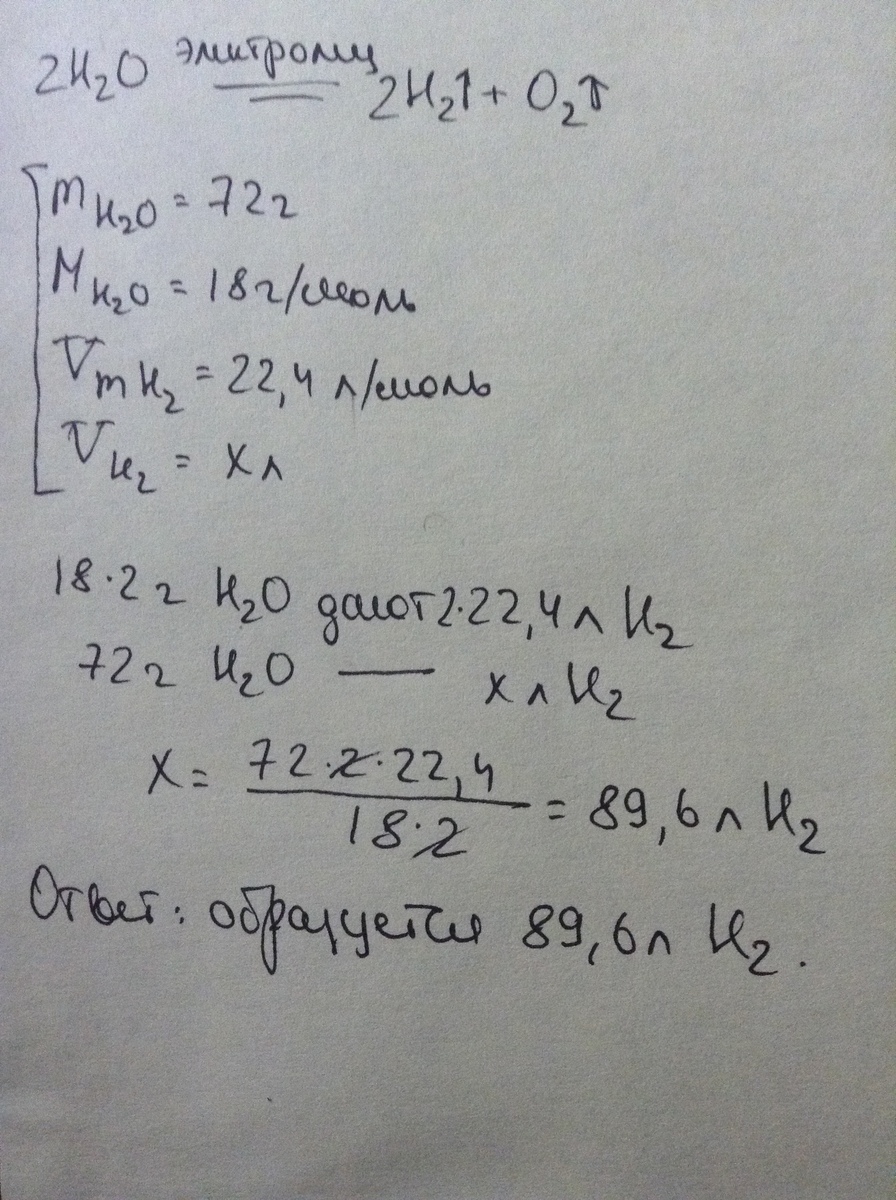 2H₂O электролиз 2H₂↑ + O₂↑
m H₂O = 72 г
M H₂O = 18 г/моль
V m H₂ = 22,4 л/моль
V H₂ = x л
18·2 г H₂O дают 2·22,4 л H₂
72 г H₂O — x л H₂
x = 72·2·22,4 / 18·2 = 89,6 л H₂
Ответ: образуется 89,6 л H₂.